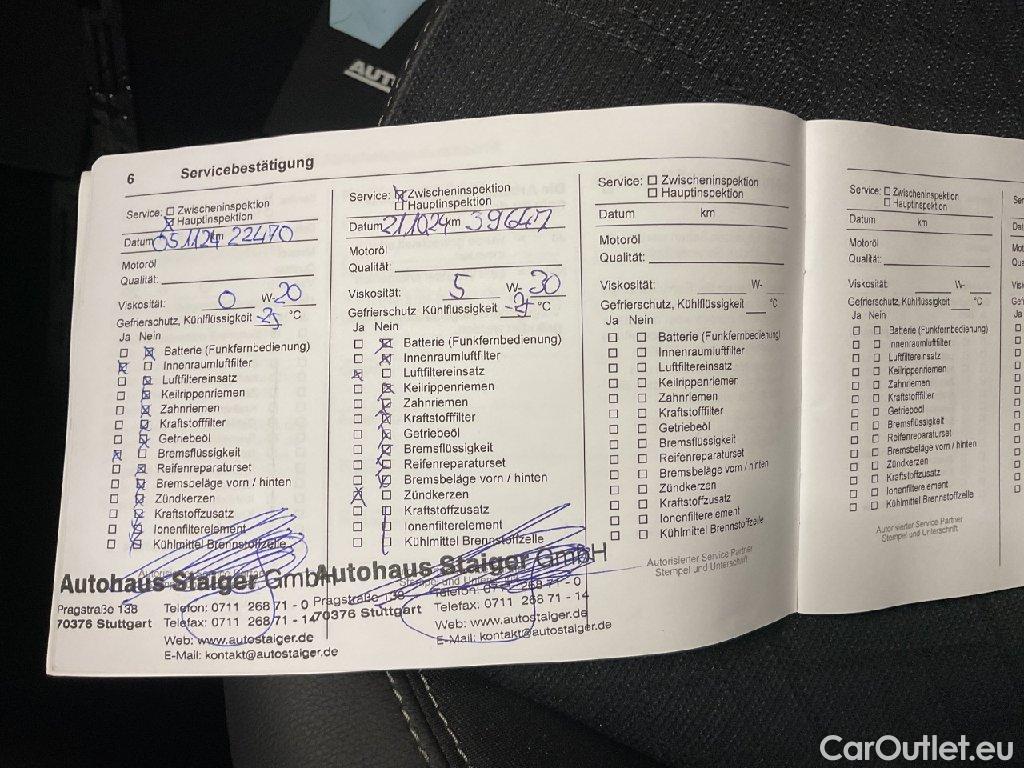 AUT
6 Servicebestätigung
Service: Zwischeninspektion
Hauptinspektion
Datum 05 11 24 km 22470
Motoröl
Qualität:
Viskosität: 0 W- 20
Gefrierschutz, Kühlflüssigkeit -25 °C
Ja Nein
Batterie (Funkfernbedienung)
Innenraumluftfilter
Luftfiltereinsatz
Keilrippenriemen
Zahnriemen
Kraftstofffilter
Getriebeöl
Bremsflüssigkeit
Reifenreparaturset
Bremsbeläge vorn / hinten
Zündkerzen
Kraftstoffzusatz
Ionenfilterelement
Kühlmittel Brennstoffzelle
Autohaus Staiger GmbH
Pragstraße 138 Telefon: 0711 268 71 - 0
70376 Stuttgart Telefax: 0711 268 71 - 14
Web: www.autostaiger.de
E-Mail: kontakt@autostaiger.de
Service: Zwischeninspektion
Hauptinspektion
Datum 21 10 24 km 39647
Motoröl
Qualität:
Viskosität: 5 W- 30
Gefrierschutz, Kühlflüssigkeit °C
Ja Nein
Batterie (Funkfernbedienung)
Innenraumluftfilter
Luftfiltereinsatz
Keilrippenriemen
Zahnriemen
Kraftstofffilter
Getriebeöl
Bremsflüssigkeit
Reifenreparaturset
Bremsbeläge vorn / hinten
Zündkerzen
Kraftstoffzusatz
Ionenfilterelement
Kühlmittel Brennstoffzelle
Autohaus Staiger GmbH
Pragstraße 138 Telefon: 0711 268 71 - 0
70376 Stuttgart Telefax: 0711 268 71 - 14
Web: www.autostaiger.de
E-Mail: kontakt@autostaiger.de
Service: Zwischeninspektion
Hauptinspektion
Datum km
Motoröl
Qualität:
Viskosität: W-
Gefrierschutz, Kühlflüssigkeit °C
Ja Nein
Batterie (Funkfernbedienung)
Innenraumluftfilter
Luftfiltereinsatz
Keilrippenriemen
Zahnriemen
Kraftstofffilter
Getriebeöl
Bremsflüssigkeit
Reifenreparaturset
Bremsbeläge vorn / hinten
Zündkerzen
Kraftstoffzusatz
Ionenfilterelement
Kühlmittel Brennstoffzelle
Autorisierter Service Partner
Stempel und Unterschrift
Service: Zwischeninspektion
Hauptinspektion
Datum km
Motoröl
Qualität:
Viskosität: W-
Gefrierschutz, Kühlflüssigkeit °C
Ja Nein
Batterie (Funkfernbedienung)
Innenraumluftfilter
Luftfiltereinsatz
Keilrippenriemen
Zahnriemen
Kraftstofffilter
Getriebeöl
Bremsflüssigkeit
Reifenreparaturset
Bremsbeläge vorn / hinten
Zündkerzen
Kraftstoffzusatz
Ionenfilterelement
Kühlmittel Brennstoffzelle
Autorisierter Service Partner
Stempel und Unterschrift
CarOutlet.eu